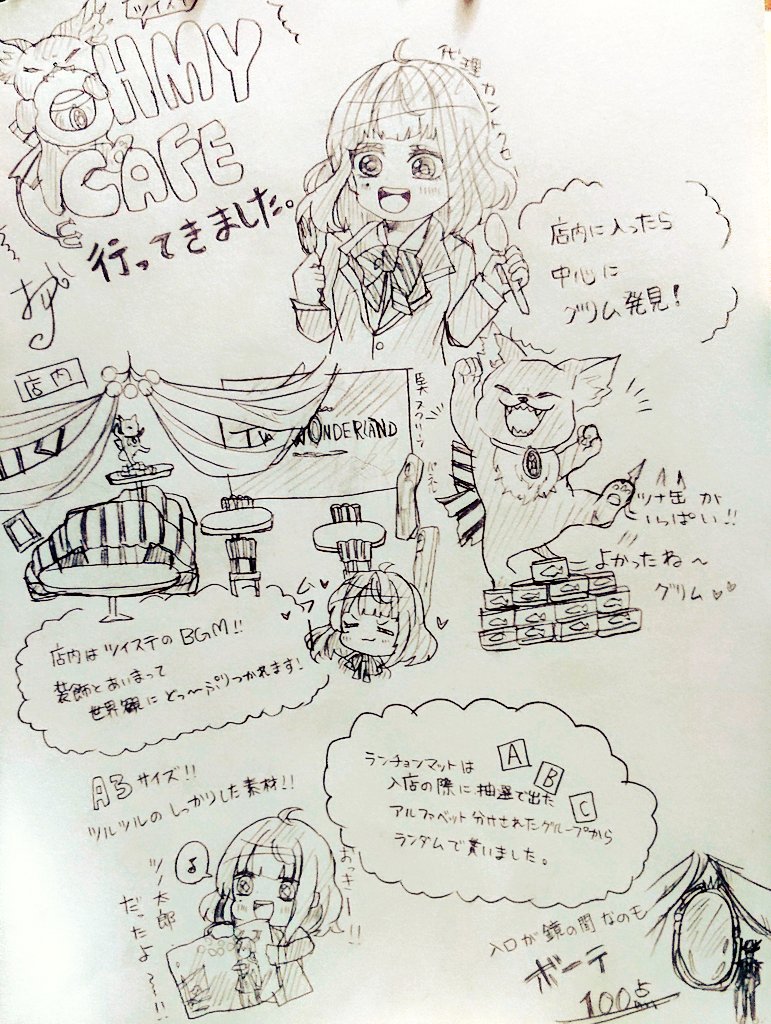 ツイステ
OHMY
CAFE
行ってきました。
代理カントクロ
店内に入ったら
中心に
グリム発見!
店内
TWI WONDERLAND
黒スクリーン
ツナ缶が
いっぱい!!
よかったね～
グリム♥♥
店内はツイステのBGM!!
装飾とあいまって
世界観にどっ～ぷりつかれます!
A3サイズ!!
ツルツルのしっかりした素材!!
ランチョンマットは
A B C
入店の際に抽選で出た
アルファベット分けされたグループから
ランダムで貰いました。
おっきー!!
ツノ太郎
だったよ～!!
入口が鏡の間なのも
ボーテ
100点